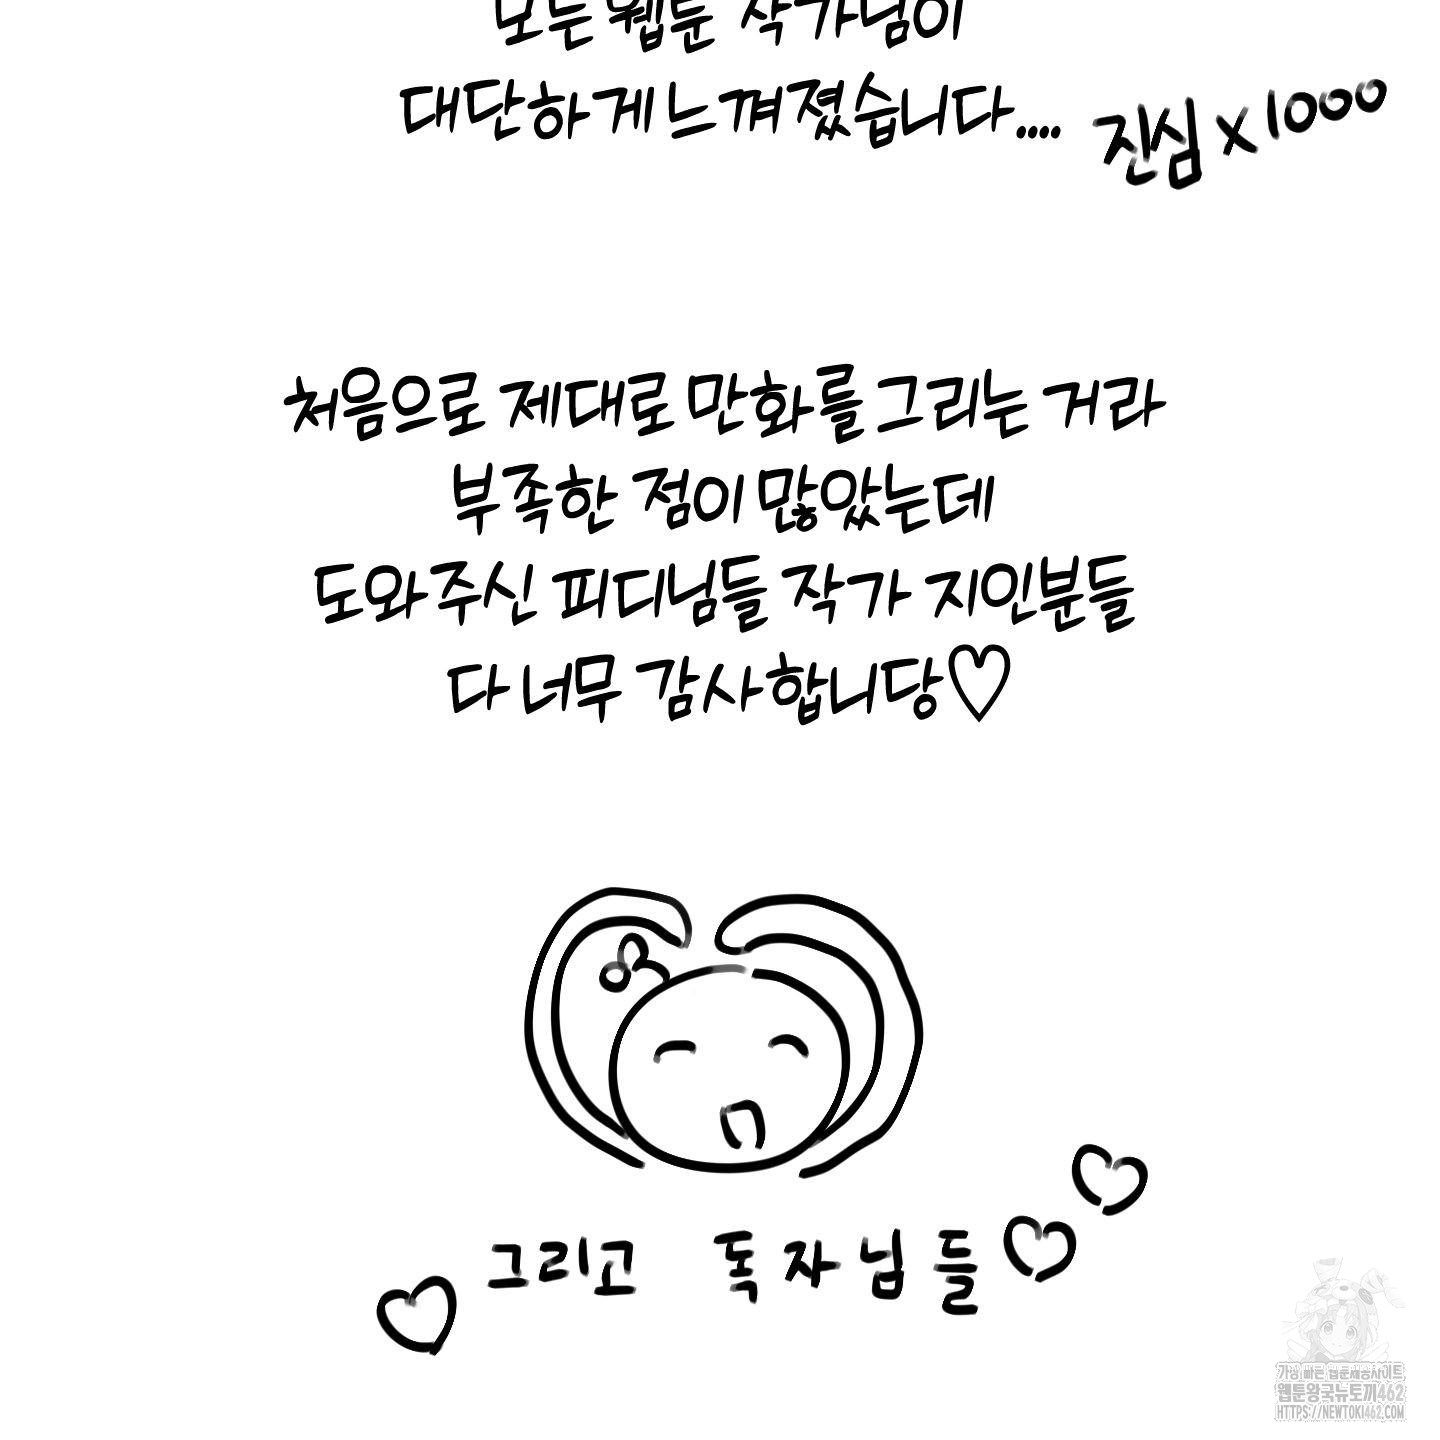 모든 웹툰 작가님이
대단하게 느껴졌습니다....
진심 x 1000
처음으로 제대로 만화를 그리는 거라
부족한 점이 많았는데
도와주신 피디님들 작가 지인분들
다 너무 감사합니당♡
그리고 독자님들♡♡
가장 빠른 웹툰제공사이트
웹툰왕국뉴토끼462
HTTPS://NEWTOKI462.COM